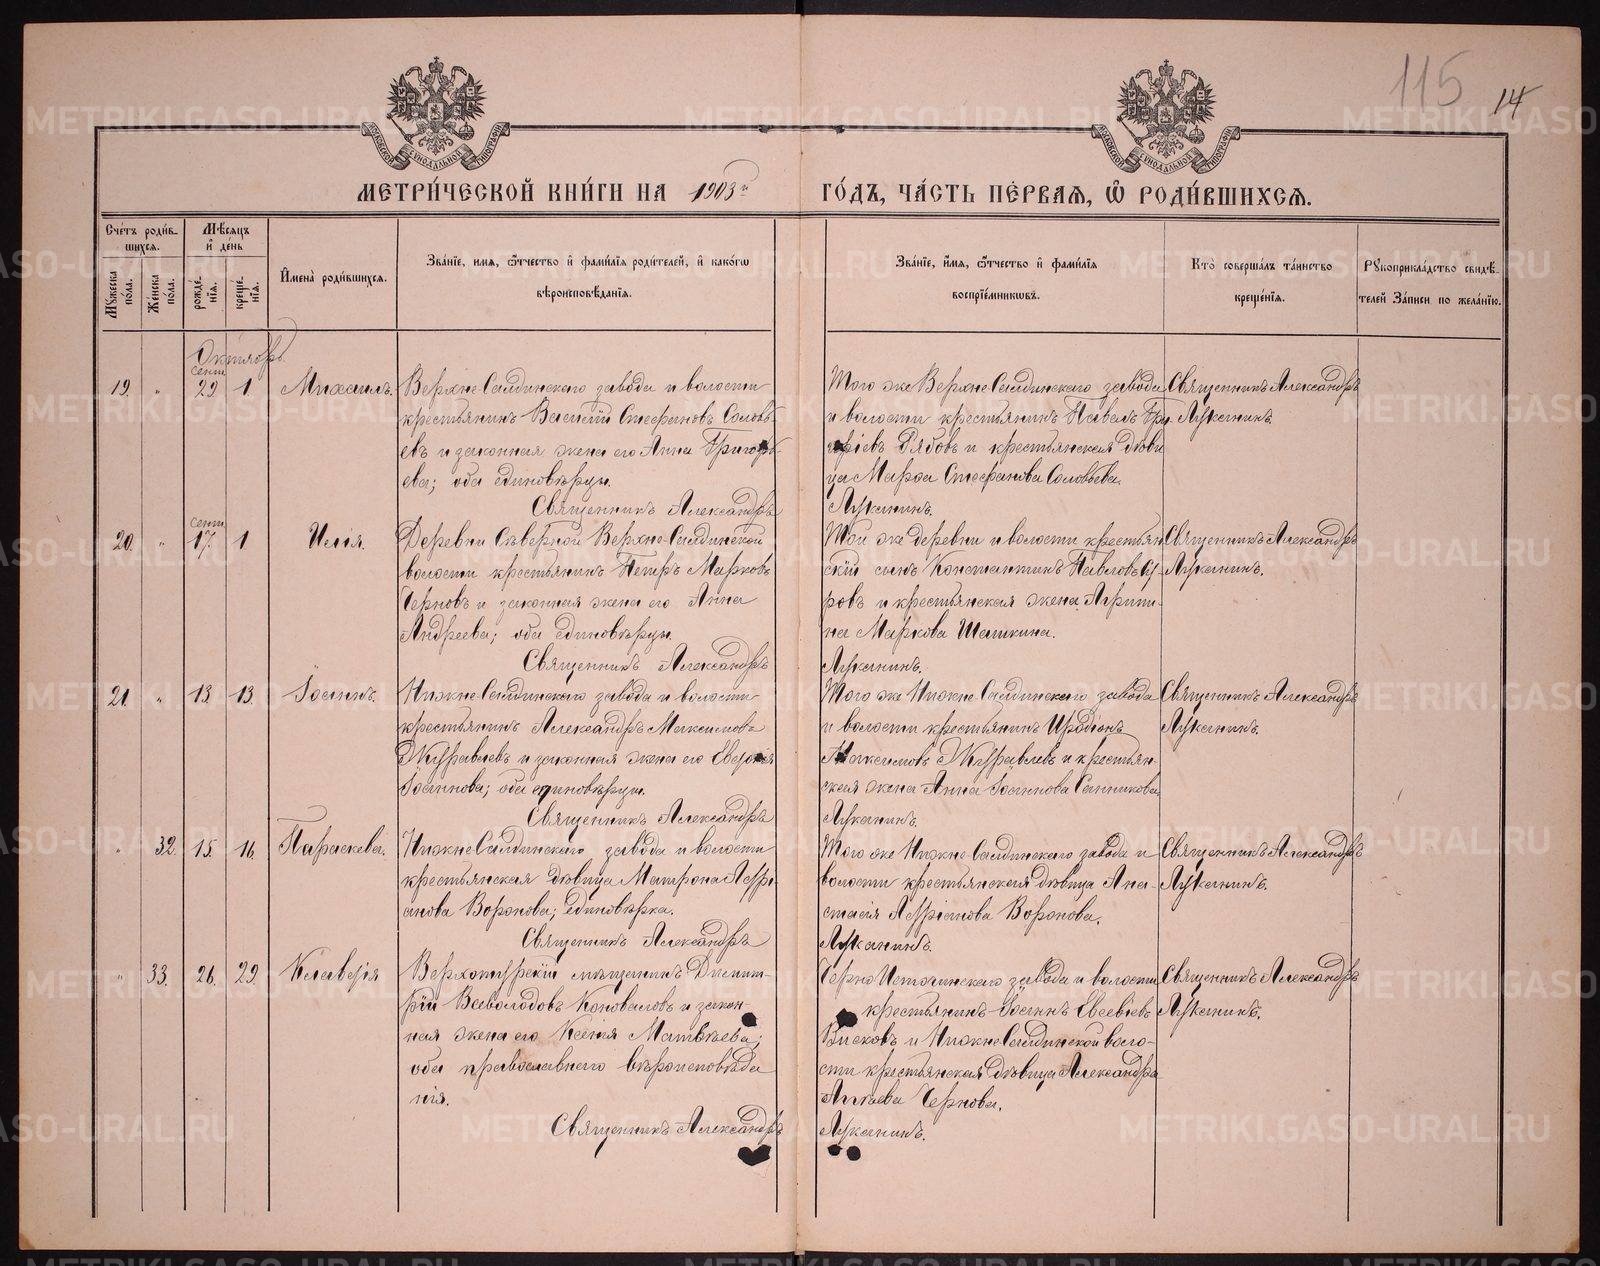 115 14
МЕТРИ́ЧЕСКОЙ КНИ́ГИ НА 1903й ГО́ДЪ, ЧА́СТЬ ПЕ́РВАЯ, Ѿ РОДИ́ВШИХСЯ.
Сче́тъ роди́вшихся.
Му́жеска по́ла.
Же́нска по́ла.
Мѣ́сяцъ и де́нь
рожде́нїя.
креще́нїя.
Имена̀ роди́вшихся.
Зва́нїе, имя, ѿтчество и фами́лїя роди́телей, и како́гѡ
вѣроисповѣ́данїя.
Зва́нїе, имя, ѿтчество и фами́лїя
воспрїе́мникѡвъ.
Кто̀ соверша́лъ та́инство
креще́нїя.
Рукоприкла́дство свидѣ́-
телей За́писи по жела́нїю.
Октябрь
сент.
19. " 29 1. Михаилъ.
Верхне-Салдинскаго завода и волости
крестьянинъ Василій Стефановъ Соловь-
евъ и законная жена его Анна Григорь-
ева; оба единовѣрцы.
Священникъ Александръ
Того же Верхне-Салдинскаго завода
и волости крестьянинъ Павелъ Гри-
горіевъ Рябовъ и крестьянская дѣви
ца Марѳа Стефанова Соловьева.
Луканинъ.
Священникъ Александръ
Луканинъ.
сент.
20. " 17. 1 Илія.
Деревни Сѣверной Верхне-Салдинской
волости крестьянинъ Петръ Марковъ
Черновъ и законная жена его Анна
Андреева; оба единовѣрцы.
Священникъ Александръ
Той же деревни и волости крестьян
скій сынъ Константинъ Павловъ
ровъ и крестьянская жена Агрипи-
на Маркова Шашкина.
Луканинъ.
Священникъ Александръ
Луканинъ.
21. " 13. 13. Іоаннъ.
Нижне-Салдинскаго завода и волости
крестьянинъ Александръ Максимовъ
Журавлевъ и законная жена его Евдокія
Іоаннова; оба единовѣрцы.
Священникъ Александръ
Того же Нижне-Салдинскаго завода
и волости крестьянинъ Иродіонъ
Максимовъ Журавлевъ и крестьян-
ская жена Анна Іоаннова Санникова.
Луканинъ.
Священникъ Александръ
Луканинъ.
" 32. 15. 16. Параскева.
Нижне-Салдинскаго завода и волости
крестьянская дѣвица Матрона Адрі-
анова Воронова; единовѣрка.
Священникъ Александръ
Того же Нижне-Салдинскаго завода и
волости крестьянская дѣвица Ана-
стасія Адріанова Воронова.
Луканинъ.
Священникъ Александръ
Луканинъ.
" 33. 26. 29. Клавдія
Верхотурскій мѣщанинъ Димит-
рій Всеволодовъ Коновалов и закон-
ная жена его Ксенія Матвѣева;
оба православнаго вѣроисповѣда
нія.
Священникъ Александръ
Черно-Источинскаго завода и волости
крестьянинъ Іоаннъ Евсевіевъ
Висковъ и Нижне-Салдинской воло-
сти крестьянская дѣвица Александра
Чернова.
Луканинъ.
Священникъ Александръ
Луканинъ.
METRIKI.GASO-URAL.RU